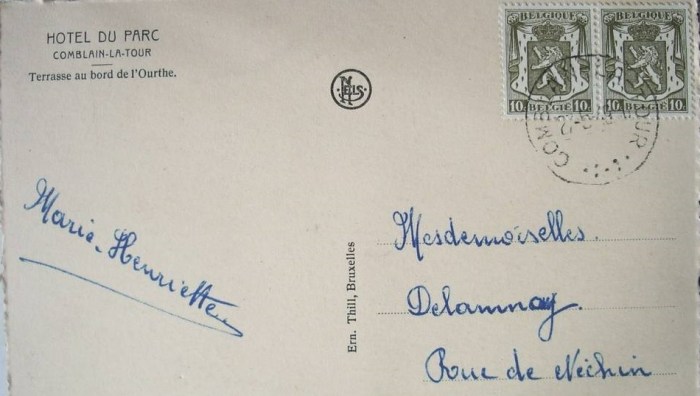 HOTEL DU PARC
COMBLAIN-LA-TOUR
Terrasse au bord de l'Ourthe.
NELS
BELGIQUE BELGIQUE
10 BELGIË 10 10 BELGIË 10
Marie-Henriette
Ern. Thill, Bruxelles
Mesdemoiselles.
Delannay
Rue de Néchin